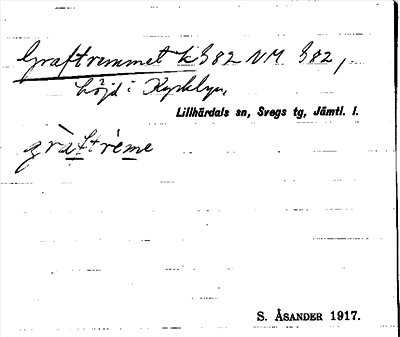 Graftremmet k 982 NM 982,
höjd i Kyrkbyn,
Lillhärdals sn, Svegs tg, Jämtl. l.
gràftrème
S. ÅSANDER 1917.